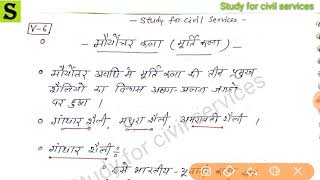 S
Study for civil services
- Study for civil services -
V-6
- मौर्योत्तर कला (मूर्ति कला)
मौर्योत्तर अवधि में मूर्ति कला की तीन प्रमुख
शैलियों का विकास अलग-अलग जगहों
पर हुआ ।
गांधार शैली, मथुरा शैली, अमरावती शैली ।
गांधार शैली :-
इसे भारतीय - यूनानी
Study for civil services